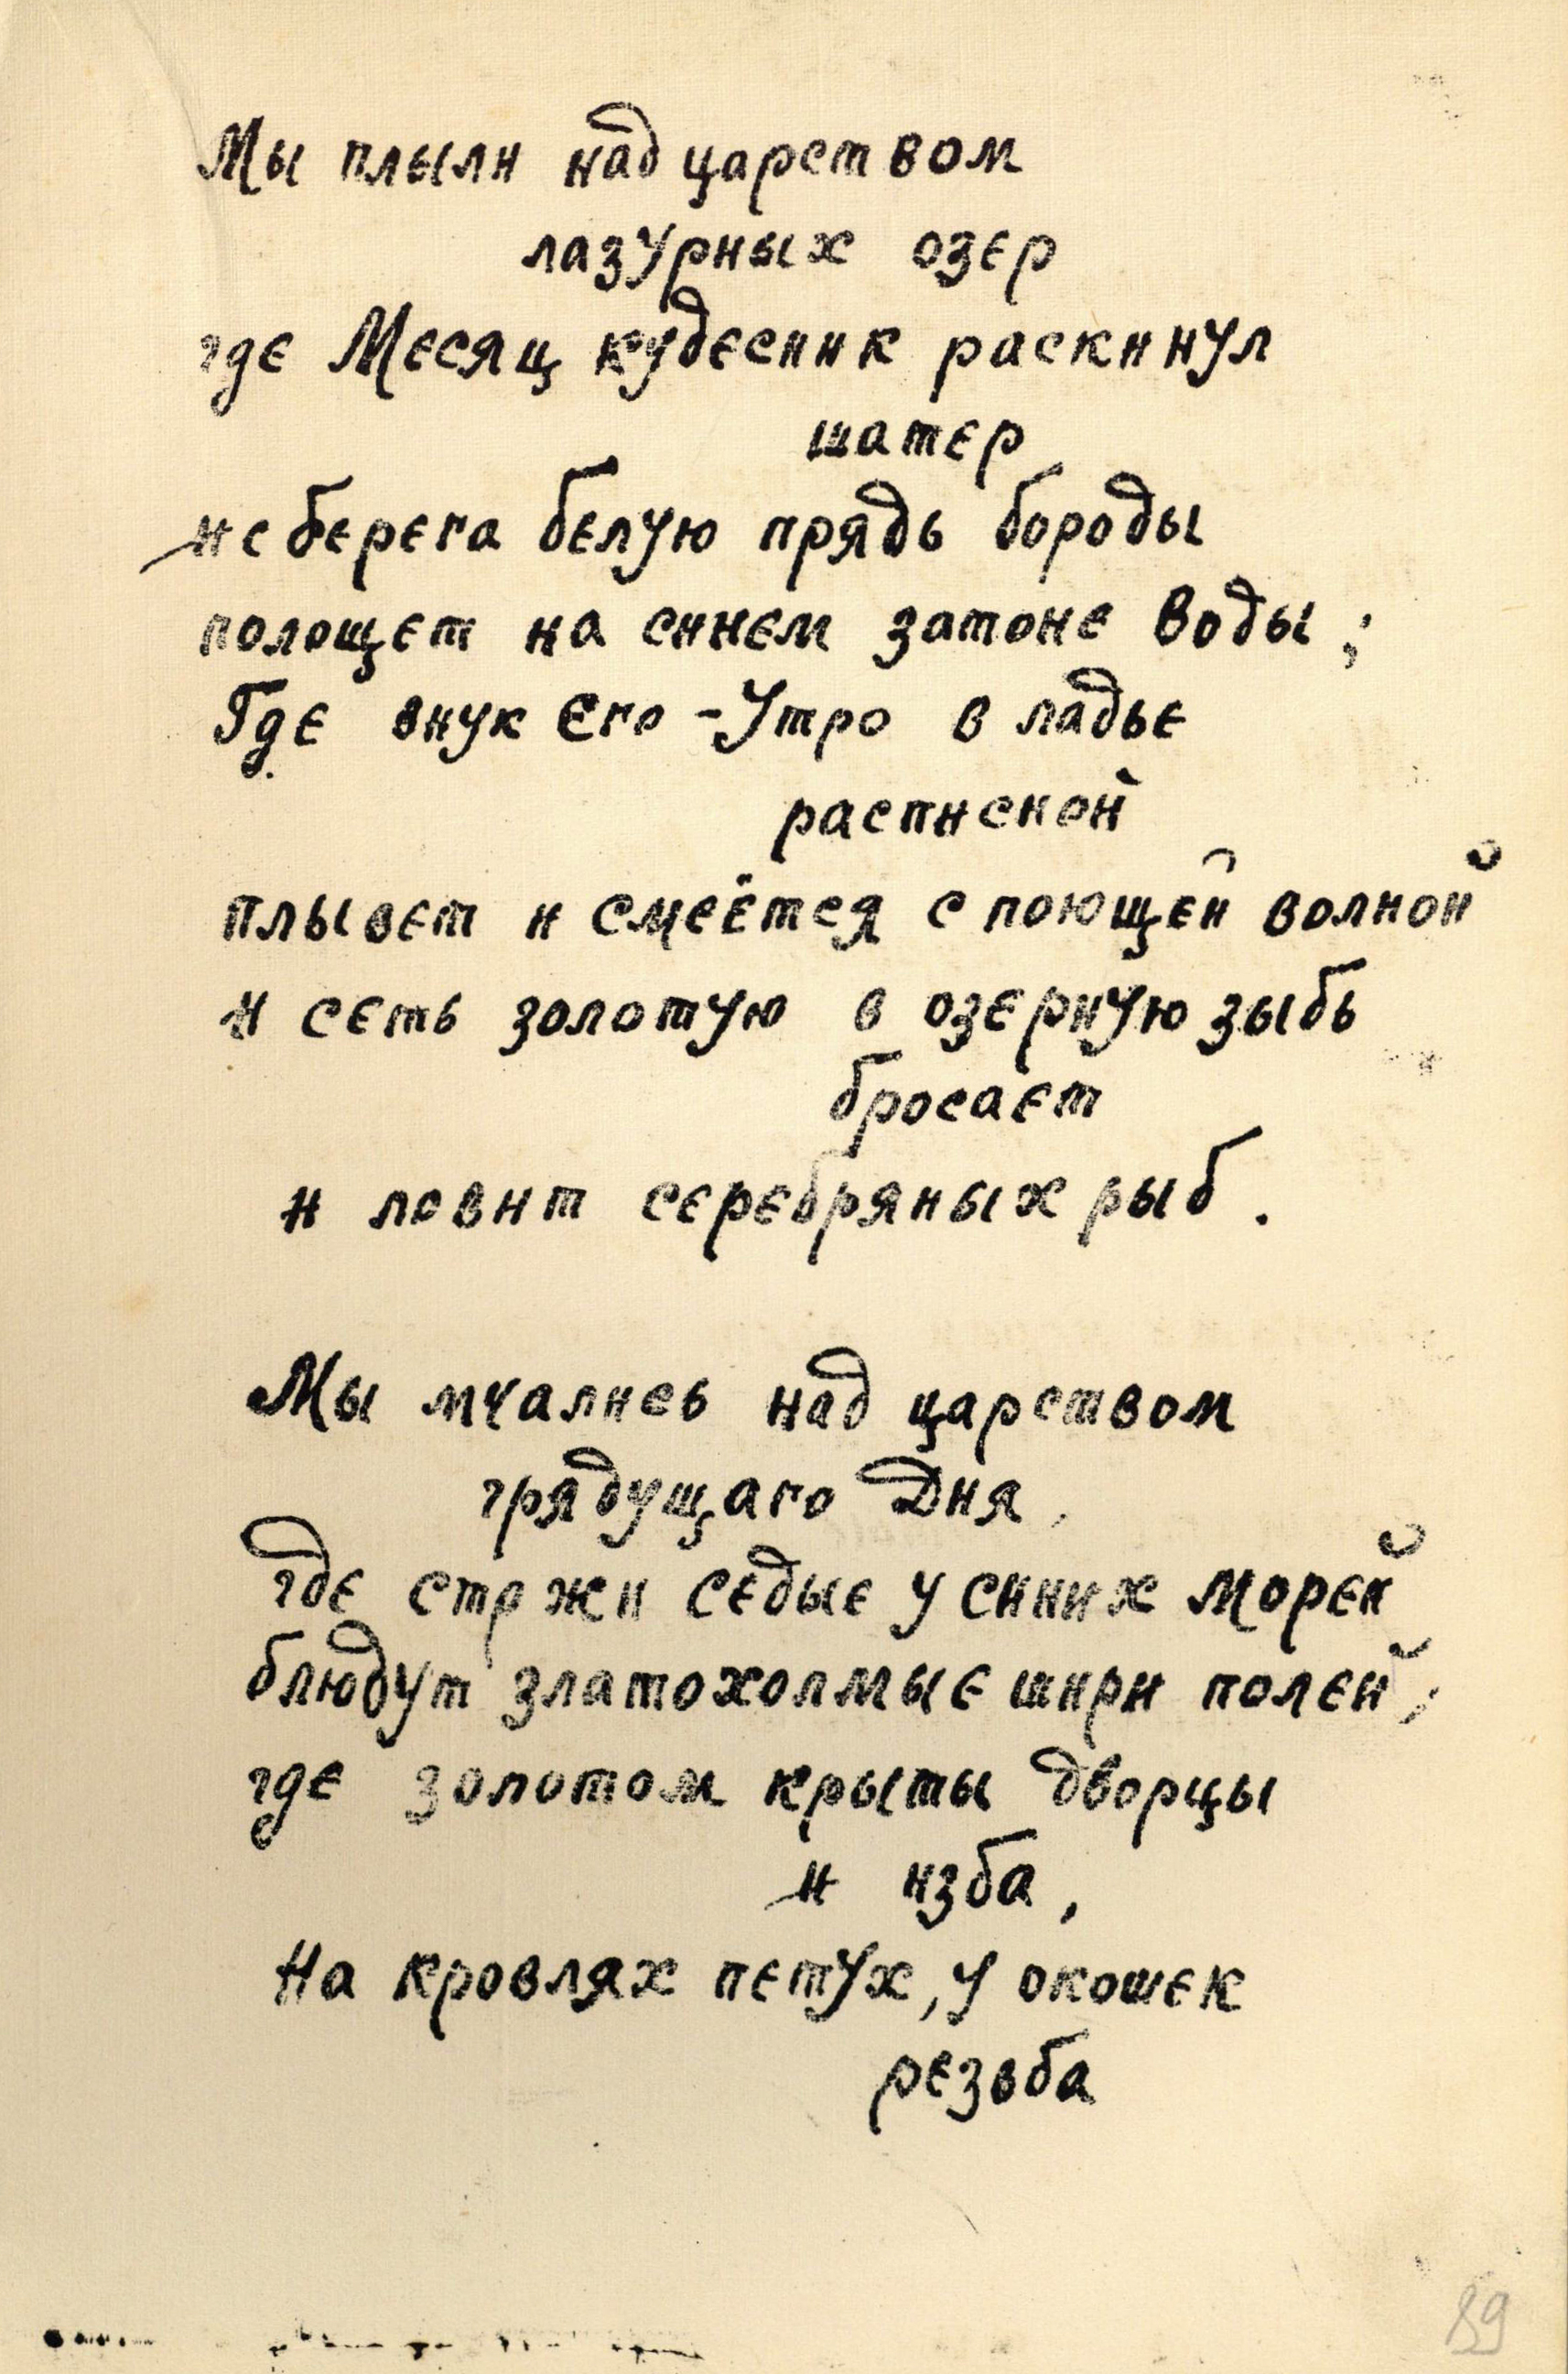 Мы плыли над царством
лазурных озер
где Месяц кудесник раскинул
шатер
и с берега белую прядь бороды
полощет на синем затоне воды;
Где внук Его - Утро в ладье
расписной
плывет и смеётся с поющей волной
и сеть золотую в озерную зыбь
бросает
и ловит серебряных рыб.
Мы мчались над царством
грядущаго Дня,
где стржи седые у синих морей
блюдут златохолмые шири полей,
где золотом крыты дворцы
и изба,
На кровлях петух, у окошек
резьба
89